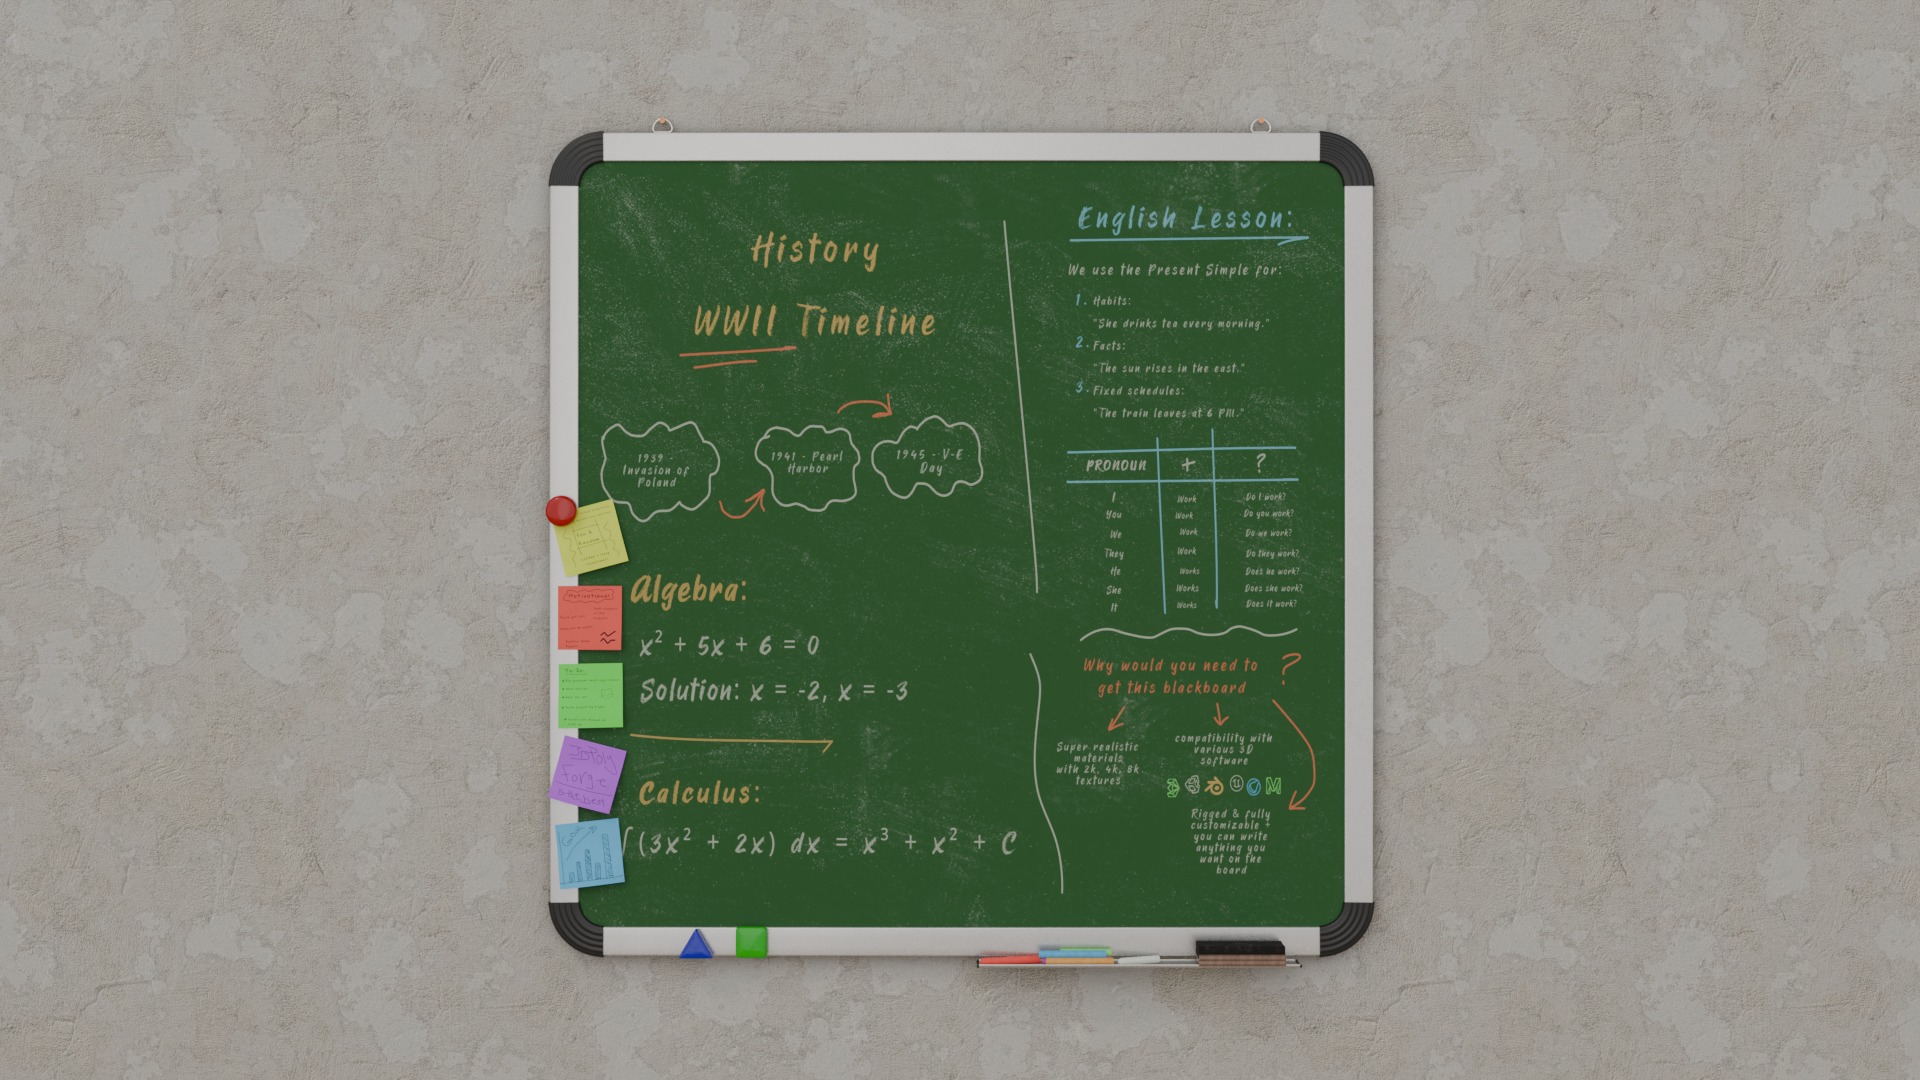 History
WWII Timeline
1939 -
Invasion of
Poland
1941 - Pearl
Harbor
1945 - V-E
Day
Algebra:
x² + 5x + 6 = 0
Solution: x = -2, x = -3
Calculus:
∫(3x² + 2x) dx = x³ + x² + C
English Lesson:
We use the Present Simple for:
1. Habits:
"She drinks tea every morning."
2. Facts:
"The sun rises in the east."
3. Fixed schedules:
"The train leaves at 6 PM."
PRONOUN + ?
I Work Do I work?
You Work Do you work?
We Work Do we work?
They Work Do they work?
He Works Does he work?
She Works Does she work?
It Works Does it work?
Why would you need to
get this blackboard ?
Super realistic
materials
with 2k, 4k, 8k
textures
compatibility with
various 3D
software
Rigged & fully
customizable +
you can write
anything you
want on the
board
Motivational
To Do:
Forge